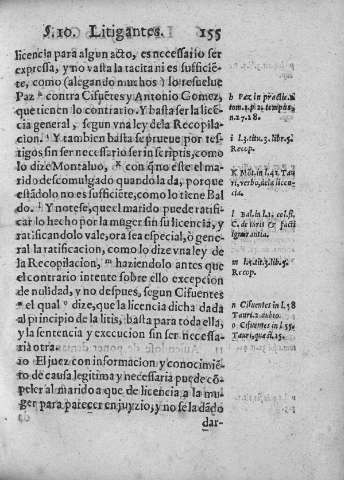 §.10. Litigantes. 155
licencia para algun acto, es necessario ser
expressa, y no vasta la tacita ni es suficiẽ-
te, como (alegando muchos) lo resuelue
Paz ʰ contra Cifuẽtes y Antonio Gomez,
que tienen lo contrario. Y basta ser la licẽ
cia general, segun vna ley dela Recopila-
cion. ⁱ Y tambien basta se prueue por tes-
tigos sin ser necessario ser in scriptis, como
lo dize Montaluo, ᵏ con q̃ no este el ma-
rido descomulgado quando la da, porque
estãdolo no es suficiẽte, como lo tiene Bal
do. ˡ Y notese, que el marido puede ratifi-
car lo hecho por la muger sin su licencia, y
ratificandolo vale, ora sea especial, ò gene
ral la ratificacion, como lo dize vna ley de
la Recopilacion, ᵐ haziendolo antes que
el contrario intente sobre ello excepcion
de nulidad, y no despues, segun Cifuentes
ⁿ el qual ᵒ dize, que la licencia dicha dada
al principio de la litis, basta para toda ella,
y la sentencia y execucion sin ser necessa-
ria otra.
10 El juez con informacion y conocimiẽ-
to de causa legitima y necessaria puede cõ
peler al marido a que de licencia a la mu-
ger para parecer en juyzio, y no se la dãdo
dar-
h Paz in practic. ti
tom. 1. p. 2. temp.
n. 27. 28.
i l. 3. titu. 3. libr. 5.
Recop.
K Mõt. in l. 41. Tau
ri, verbo, dela licen-
cia.
l Bal. in l. 1. col. fi.
C. de iuris & facti
ignorantia.
m l. 5. titu. 3. lib. 5.
Recop.
n Cifuentes in l. 58
Tauri. 2. dubio.
o Cifuentes in l. 55.
Tauri, quæst. 15.